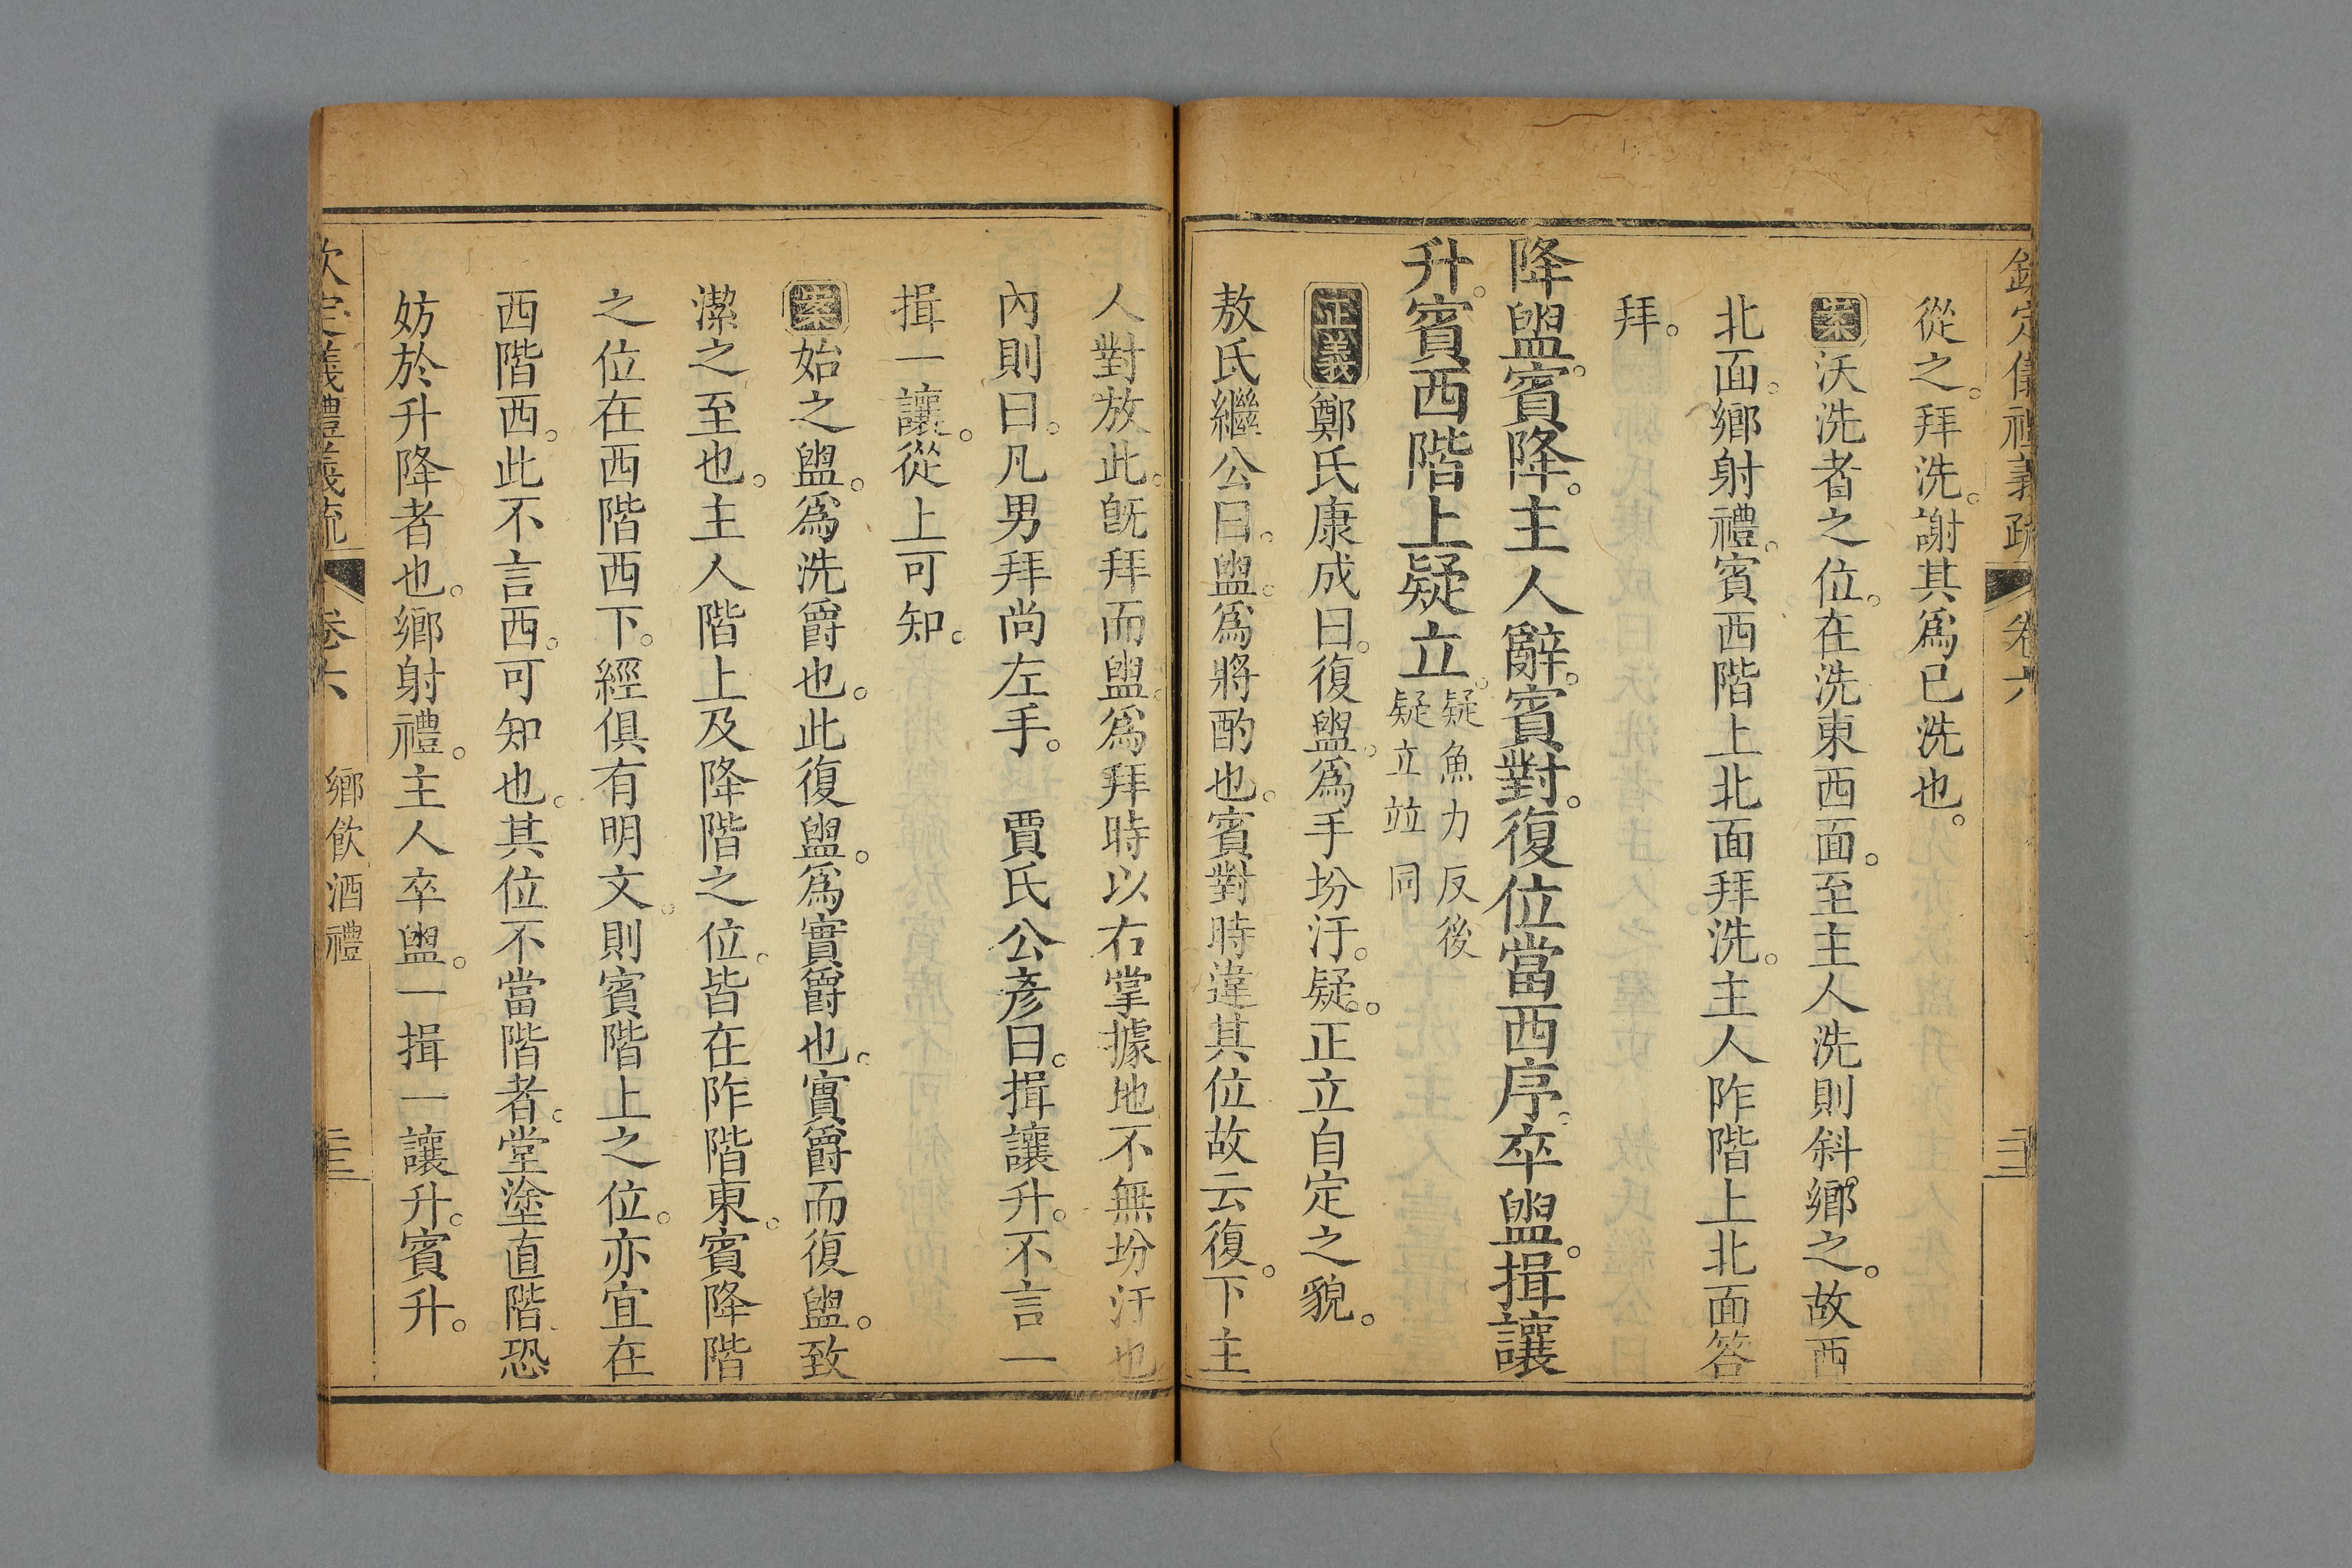 欽定儀禮義疏 卷六
從之。拜洗。謝其爲已洗也。
案沃洗者之位。在洗東西面。至主人洗則斜鄉之。故西
北面。鄉射禮。賓西階上北面拜洗。主人阼階上北面答
拜。
降盥。賓降。主人辭。賓對。復位當西序。卒盥。揖讓
升。賓西階上疑立。疑魚力反後
疑立竝同
正義鄭氏康成曰。復盥。爲手坋汙。疑。正立自定之貌。
敖氏繼公曰。盥。爲將酌也。賓對時違其位故云復。下主
人對放此。旣拜而盥。爲拜時以右掌據地不無坋汙也
內則曰。凡男拜尚左手。 賈氏公彥曰。揖讓升。不言一
揖一讓。從上可知。
案始之盥。爲洗爵也。此復盥。爲實爵也。實爵而復盥。致
潔之至也。主人階上及降階之位。皆在阼階東。賓降階
之位在西階西下。經俱有明文。則賓階上之位。亦宜在
西階西。此不言西。可知也。其位不當階者。堂塗直階恐
妨於升降者也。鄉射禮。主人卒盥。一揖一讓升。賓升。
欽定義禮義疏 卷六 鄉飲酒禮